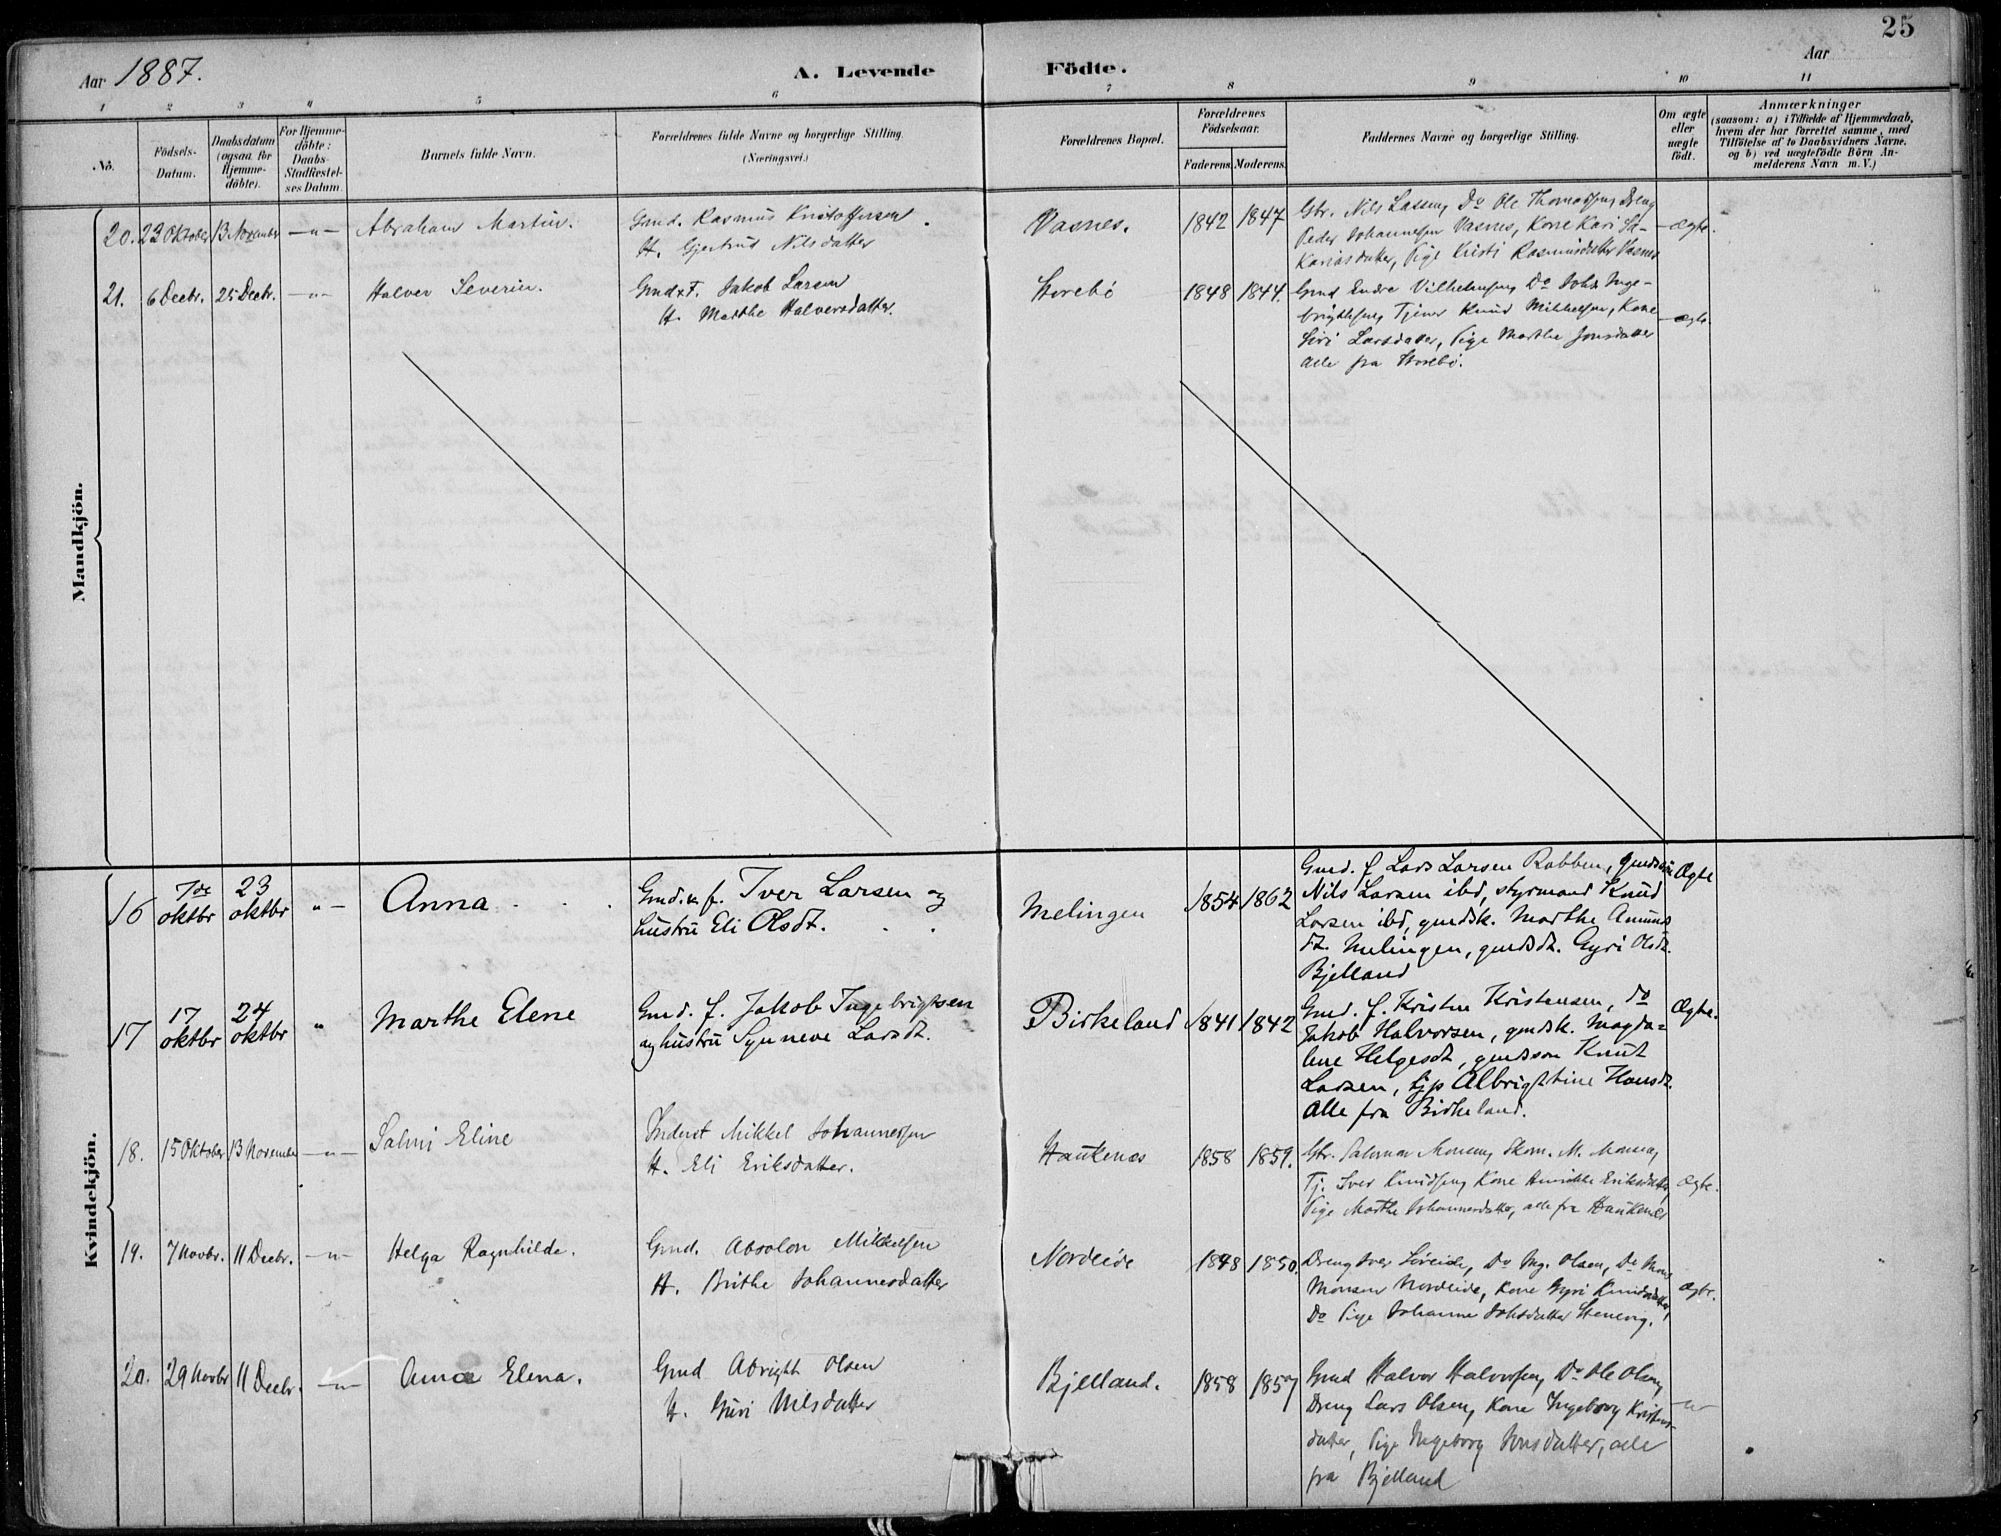 25
Aar 1887.
A. Levende Födte.
Aar
1 2 3 4 5 6 7 8 9 10 11
No.
Födsels-
Datum.
Daabsdatum
(ogsaa for
Hjemme-
döbte).
For Hjemme-
döbte:
Daabs-
Stadfæstel-
ses Datum.
Barnets fulde Navn.
Forældrenes fulde Navne og borgerlige Stilling.
(Næringsvei.)
Forældrenes Bopæl.
Forældrenes
Födselsaar.
Faderens. Moderens.
Faddernes Navne og borgerlige Stilling.
Om ægte
eller
uægte
födt.
Anmærkninger
(saasom: a) i Tilfælde af Hjemmedaab,
hvem der har forrettet samme, med
Tilföielse af to Daabsvidners Navne.
og b) ved uægtefödte Börn An-
melderens Navn m. V.)
Mandkjön.
20. 23 Oktober 13 November —"— Abraham Martin.
Gmd. Rasmus Kristoffersen
H. Gjertrud Nilsdatter
Vasnes. 1842 1847
Gbr. Nils Lassen, Do Ole Thomassen, Dreng
Peder Johannessen Vasnes, Kone Kari Za-
kariasdatter, Pige Kristi Rasmusdatter Vasnes
ægte.
21. 6 Decbr. 25 Decbr. —"— Halvor Severin.
Gmd. Jakob Larsen
H. Marthe Halvorsdatter.
Storebö 1848 1844.
Gmd Endre Vilhelmsen, Do Johs Inge-
brigtsen, Tjener Knud Mikkelsen, Kone
Siri Larsdatter, Pige Marthe Jonsdatter
alle fra Storebö.
ægte.
Kvindekjön.
16 7de oktbr 23 oktbr "— Anna
Gmd. f. Iver Larsen og
hustru Eli Olsdt.
Melingen 1854 1862
Gmd. f Lars Larsen Rabben, gmdssön
Nils Larsen ibd, styrmand Knud
Larsen ibd, gmdsk. Marthe Amuns
dt. Melingen, gmdsdt. Gyri Olsdt.
Bjelland
Ægte
17 17 oktbr 24 oktbr " Marthe Elene
Gmd. f. Jakob Ingebrigtsen
og hustru Synneve Larsdt.
Birkeland 1841 1842
Gmd. f. Kristen Kristensen, do
Jakob Halvorsen, gmdsk. Magda-
lene Helgesdt, gmdsson Knut
Larsen, pige Albrigtine Hansdt.
alle fra Birkeland.
Ægte.
18. 15 Oktober 13 November —"— Salmi Eline
Inderst Mikkel Johannessen
H. Eli Eriksdatter.
Haukenæs 1858 1859.
Gbr. Salomon Monsen, Skom. M. Monsen,
Tj. Iver Knudsen, Kone Eriksdatter,
Pige Marthe Johannesdatter, alle fra Haukenæs
Ægte.
19. 7 Novbr. 11 Decbr. —"— Helga Ragnhilde.
Gmd. Absolon Mikkelsen
H. Brithe Johannesdatter
Nordeide 1848 1850.
Dreng Iver Söreide, Do Ing. Olsen, Do Mons
Monsen Nordeide, Kone Gyri Knudsdatter,
Do Pige Johanne Johsdatter Stenevig.
Ægte.
20. 29 Novbr 11 Decbr. —"— Anna Elena.
Gmd Abrigth Olsen
H. Guri Nilsdatter
Bjelland. 1858 1857
Gmd Halvor Halvorsen, Do Ole Olsen,
Dreng Lars Olsen, Kone Ingeborg Kristens-
datter, Pige Ingeborg Jonsdatter, alle
fra Bjelland
"